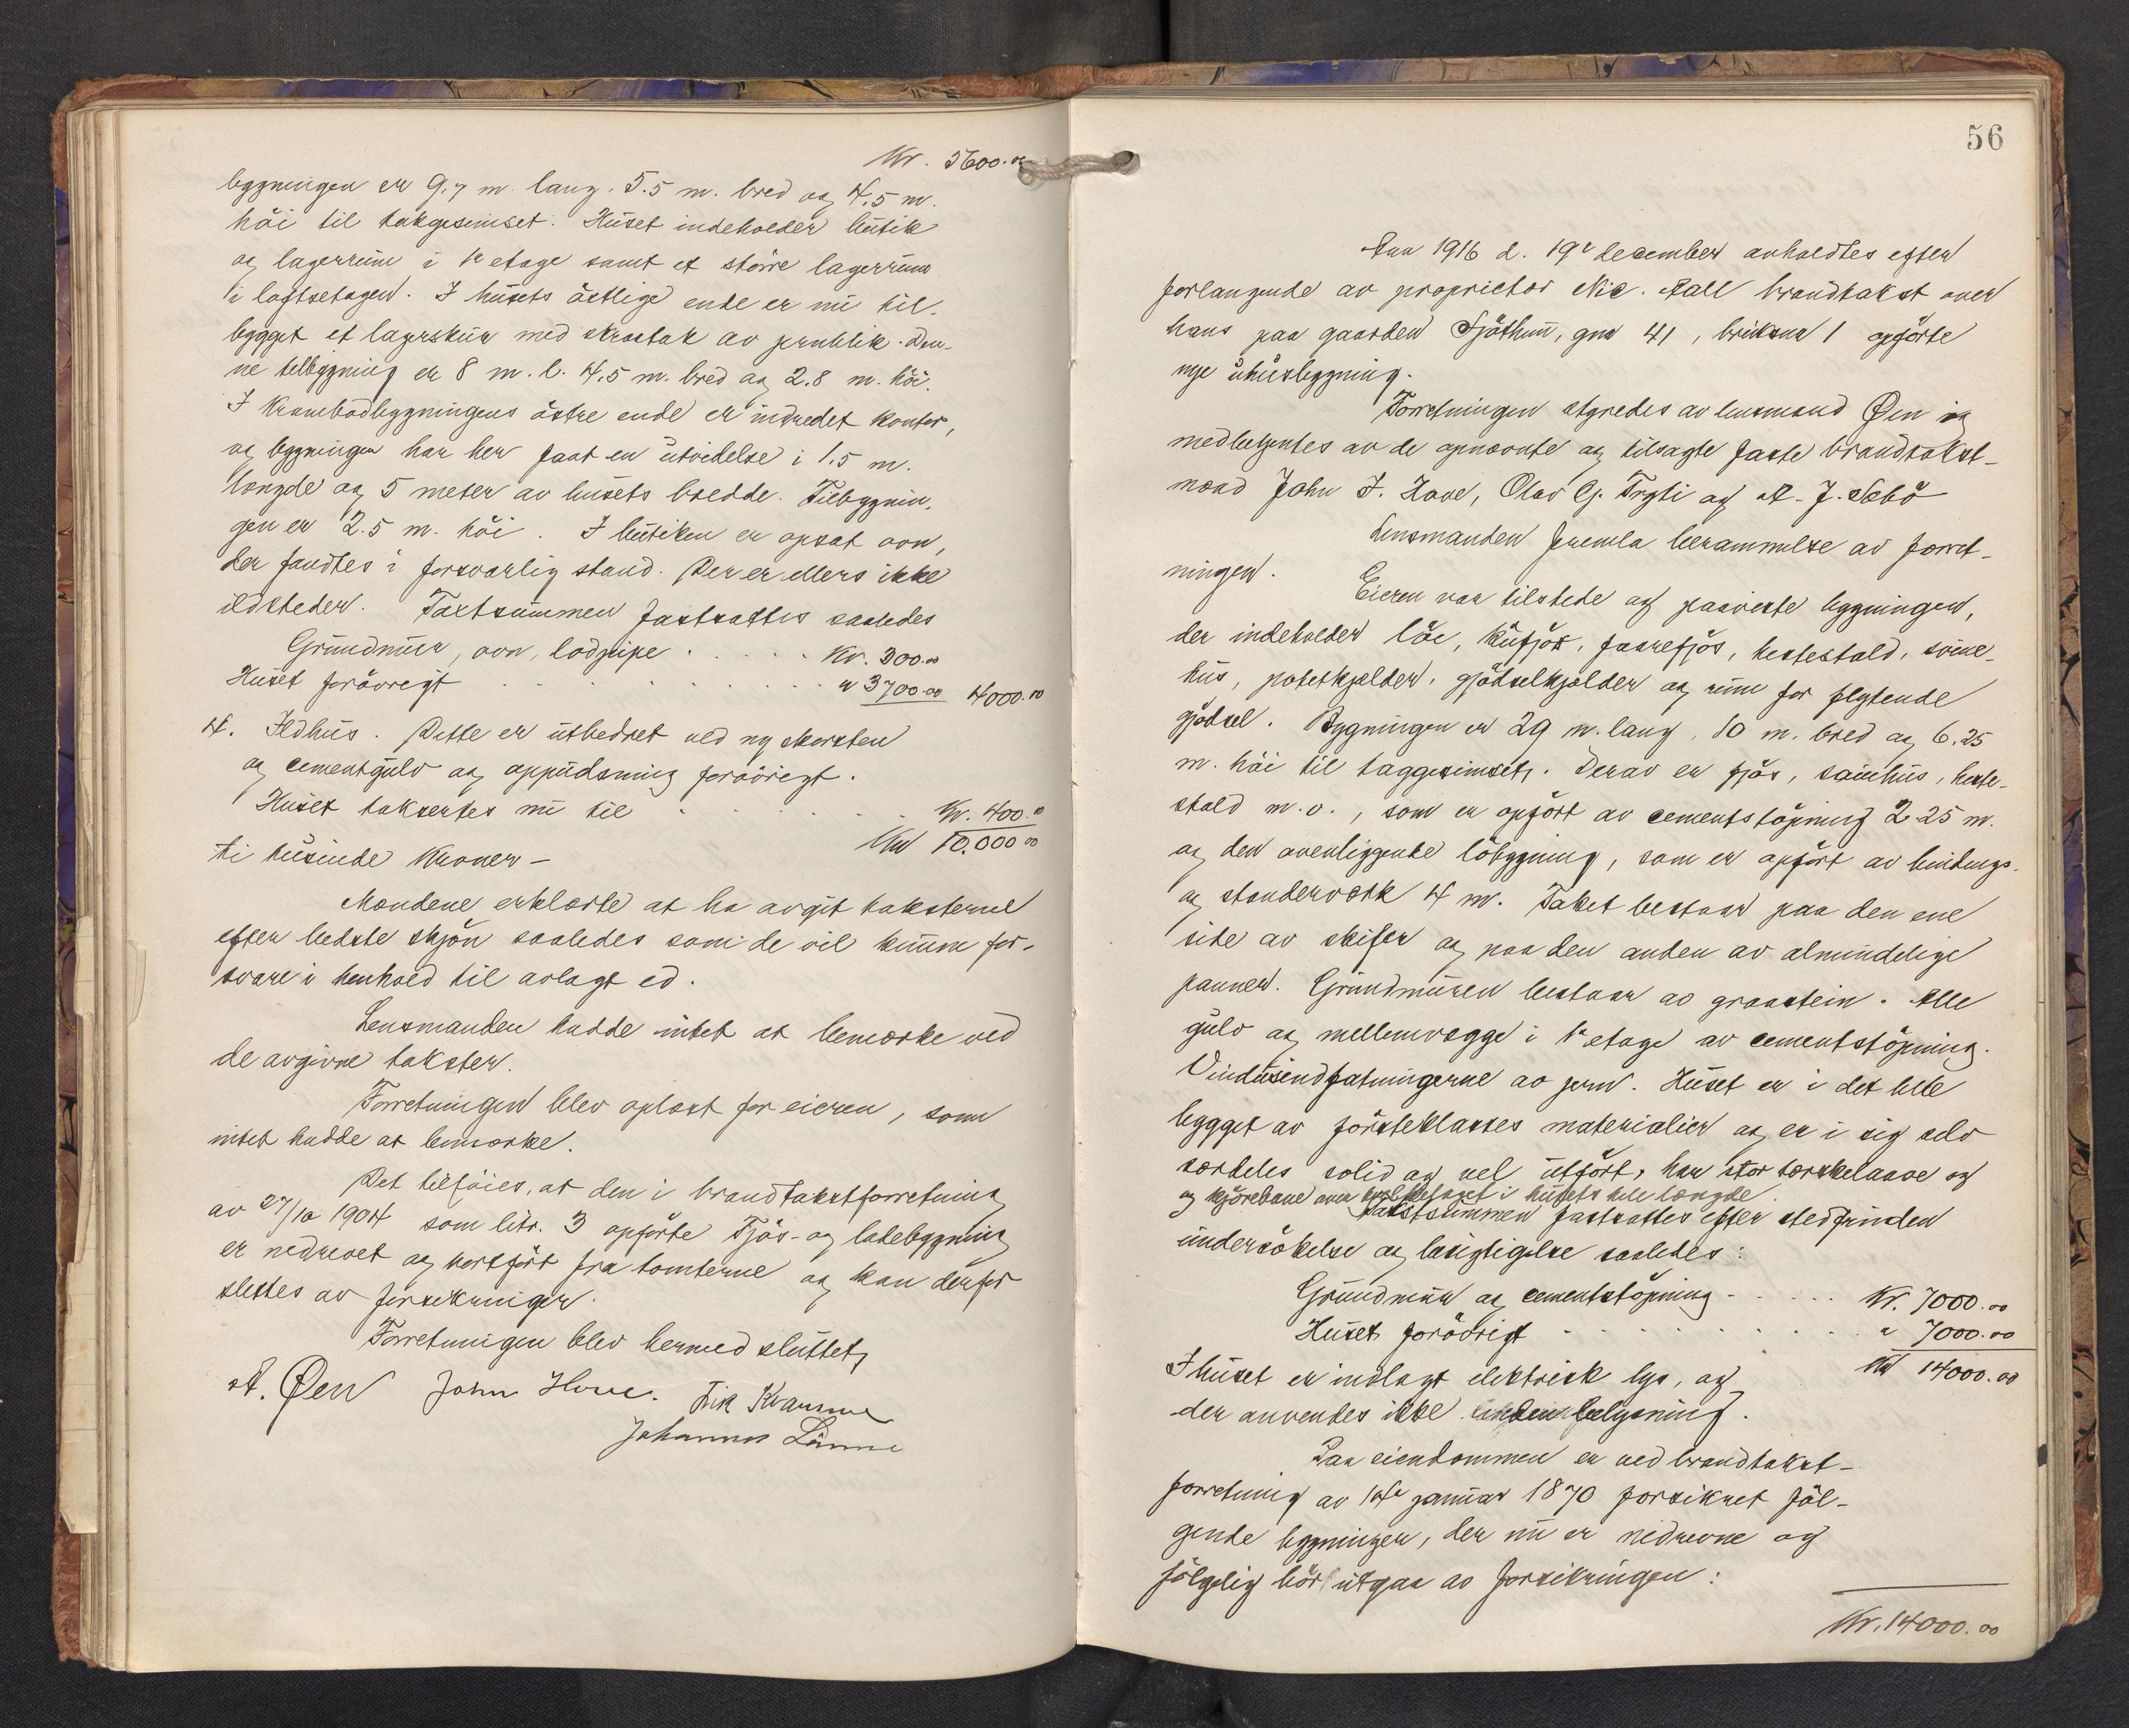 Kr. 5600.00
bygningen er 9.7 m. lang, 5.5 m. bred og 4.5 m.
höi til takgesimset. Huset indeholder butik
og lagerrum i 1e etage samt et större lagerrum
i loftsetagen. I husets östlige ende er nu til-
bygget et lagerskur med skraatak av jernblik. Den-
ne tilbygning er 8 m. l. 4.5 m. bred og 2.8 m. höi.
I krambodbygningens östre ende er indredet kontor,
og bygningen har her faat en utvidelse i 1.5 m.
længde og 5 meter av husets bredde. Tilbygnin-
gen er 2.5 m. höi. I butiken er opsat ovn,
der fandtes i forsvarlig stand. Der er ellers ikke
ildsteder. Taxtsummen fastsattes saaledes
Grundmur, ovn, lodpipe . . . . . Kr. 300.00
Huset forövrigt . . . . . . . . . " 3700.00 4000.00
4. Ildhus. Dette er utbedret ved ny skorsten
og cementgulv og oppudsning forövrigt.
Huset taksertes nu til . . . . . . Kr. 400.00
Kr 10.000 00
ti tusinde kroner –
Mændene erklærte at ha avgit taksterne
efter bedste skjön saaledes som de vil kunne for-
svare i henhold til avlagt ed.
Lensmanden hadde intet at bemerke ved
de avgivne takster.
Forretningen blev oplæst for eieren, som
intet hadde at bemærke.
Det tilföies, at den i brandtakstforretning
av 27/10 1904 som litr. 3 opförte Fjös- og ladebygning
er nedrevet og bortfört fra tomterne og kan derfor
slettes av forsikringen.
Forretningen blev hermed sluttet,
A. Øen John Hove.
Johannes
56
Aar 1916 d. 19e december avholdtes efter
forlangende av proprietær Nic. Aall brandtakst over
hans paa gaarden Fjöthun, gnr 41, bruksnr 1 opförte
nye uthusbygning.
Forretningen styredes av lensmand Øen og
medbetjentes av de opnævnte og tilsagte faste brandtakst-
mænd John I. Hove, Olav G. Trygti og A. J. Nebö
Lensmanden fremla berammelse av forret-
ningen.
Eieren var tilstede og paaviste bygningen,
der indeholder löe, kufjös, faarefjös, hestestald, svine-
hus, potetkjelder, gjödselkjelder og rum for flytende
gjödsel. Bygningen er 29 m. lang, 10 m. bred og 6.25
m. höi til taggesimset. Derav er fjös, sauehus, heste-
stald m.v., som er opfört av cementstöpning 2.25 m.
og den ovenliggende löbygning, som er opfört av bindings-
og standerværk 4 m. Taket bestaar paa den ene
side av skifer og paa den anden av almindelige
panner. Grundmuren bestaar av graastein. Alle
gulv og mellemvægge i 1e etage av cementstöpning.
Vindusindfatningerne av jern. Huset er i det hele
bygget av försteklasses materialier og er i sig selv
særdeles solid og vel utfört, har stor tærskelaave og
og kjörebane over i husets hele længde.
Takstsummen fastsattes efter stedfunden
undersökelse og besigtigelse saaledes:
Grundmur og cementstöpning . . . . . Kr. 7000.00
Huset forövrigt . . . . . . . . . " 7000.00
Kr 14000.00
I huset er indlagt elektrisk lys, og
der anvendes ikke anden belysning.
Paa eiendommen er ved brandtakst-
forretning av 14e januar 1870 forsikret föl-
gende bygninger, der nu er nedrevne og
fölgelig bör utgaa av forsikringen:
Kr. 14000.00